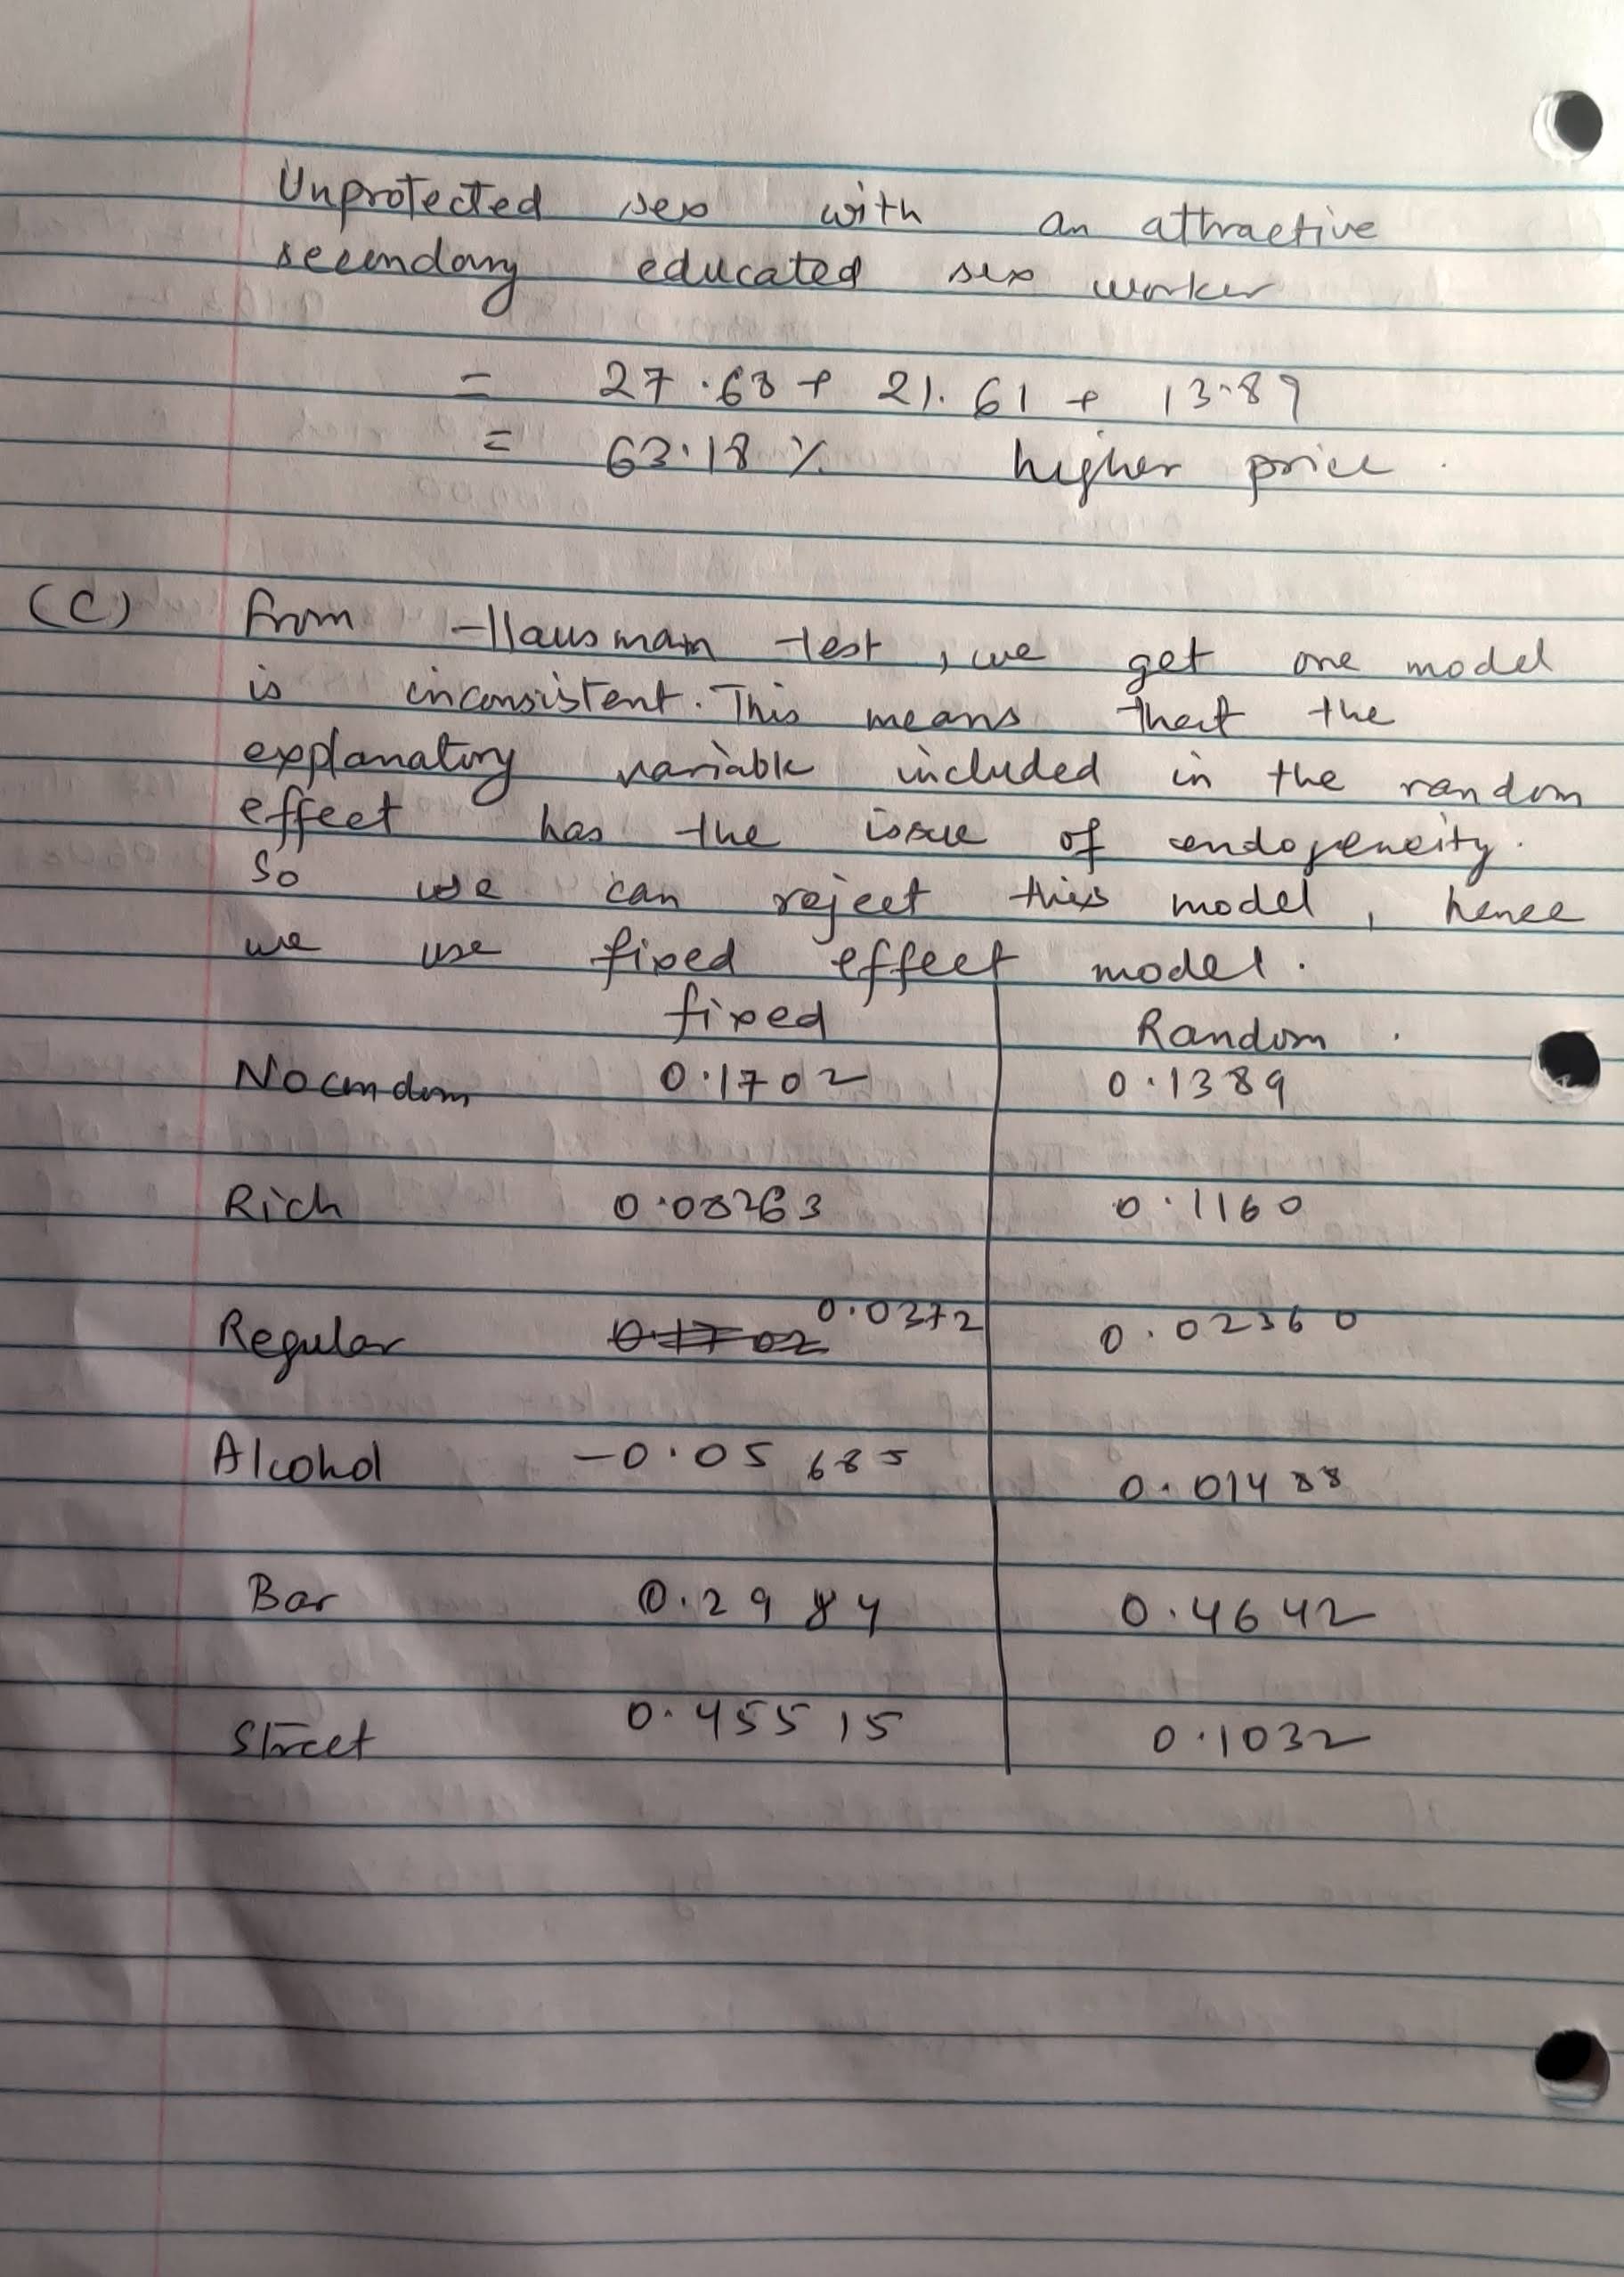 Unprotected sex with an attractive
secondary educated sex worker
= 27.68 + 21.61 + 13.89
= 63.18 % higher price.
(C) From Hausman test, we get one model
is inconsistent. This means that the
explanatory variable included in the random
effect has the issue of endogeneity.
So we can reject this model, hence
we use fixed effect model.
fixed Random.
Nocondom 0.1702 0.1389
Rich 0.08263 0.1160
Regular 0.1702 0.0372 0.02360
Alcohol -0.05685 0.01488
Bar 0.2984 0.4642
Street 0.45515 0.1032